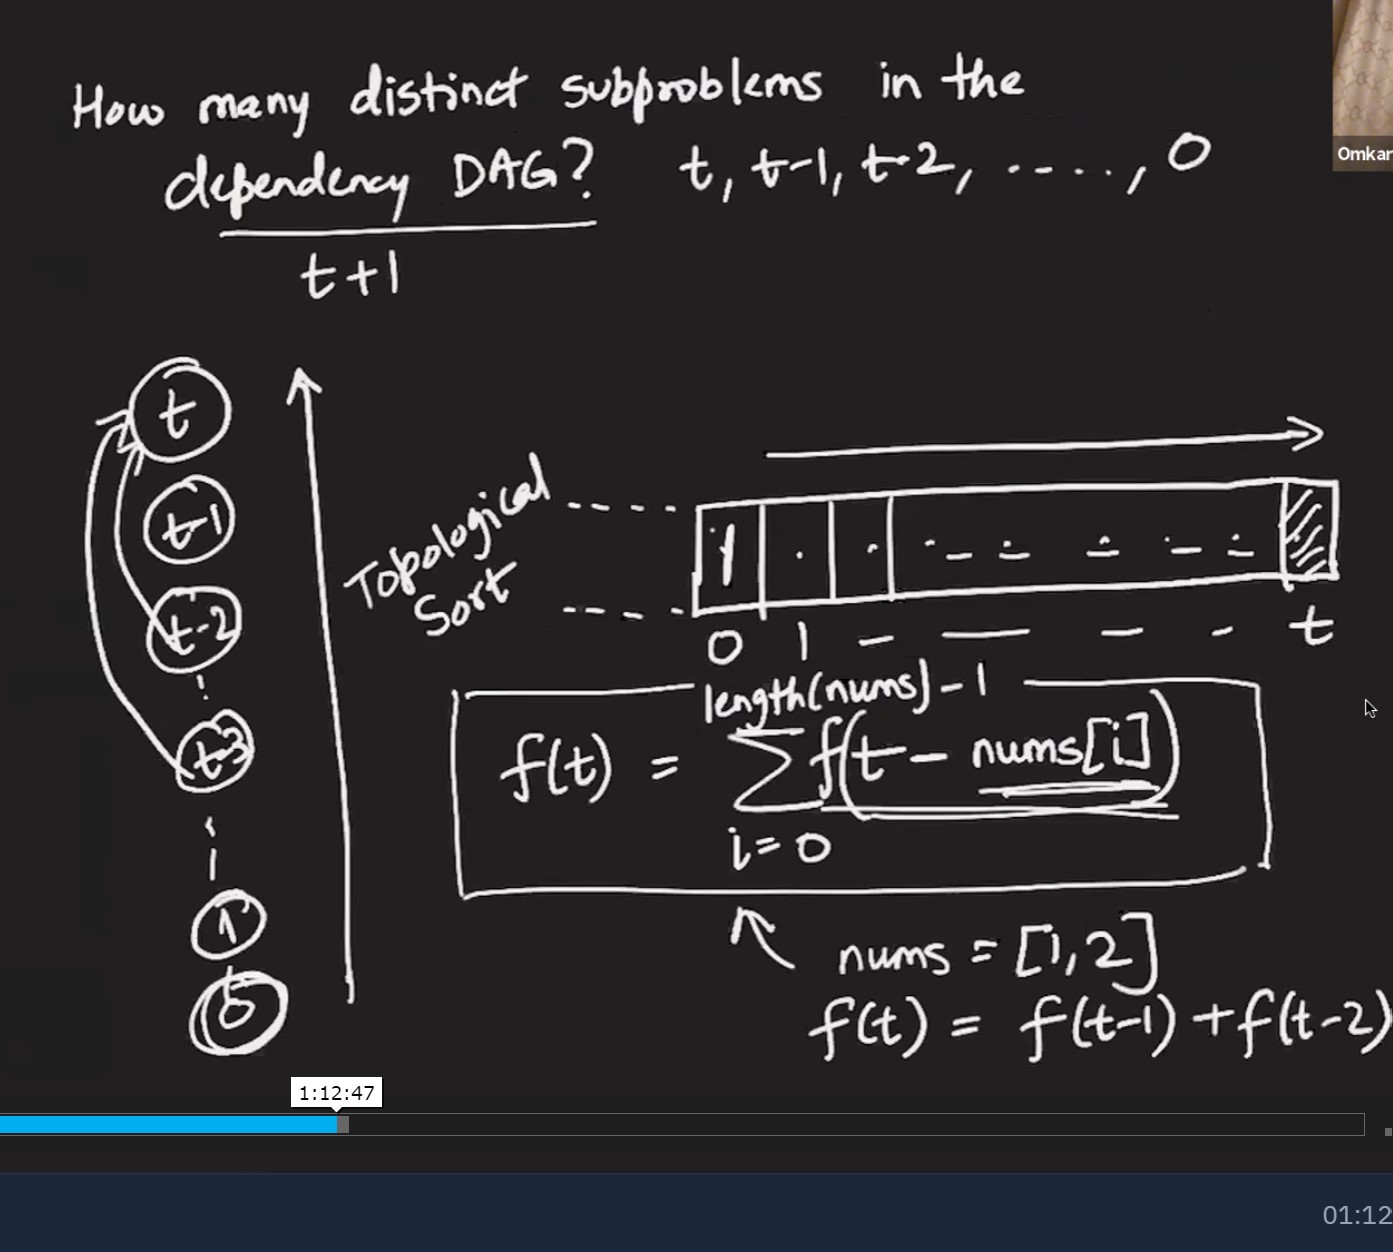 How many distinct subproblems in the
Omkar
dependency DAG? t, t-1, t-2, ...., 0
t+1
t
t-1
Topological
Sort
1
t-2
0 1 — — — - t
length(nums)-1
t-3
f(t) = Σ f(t - nums[i])
i=0
1
nums = [1,2]
0
f(t) = f(t-1) + f(t-2)
1:12:47
01:12